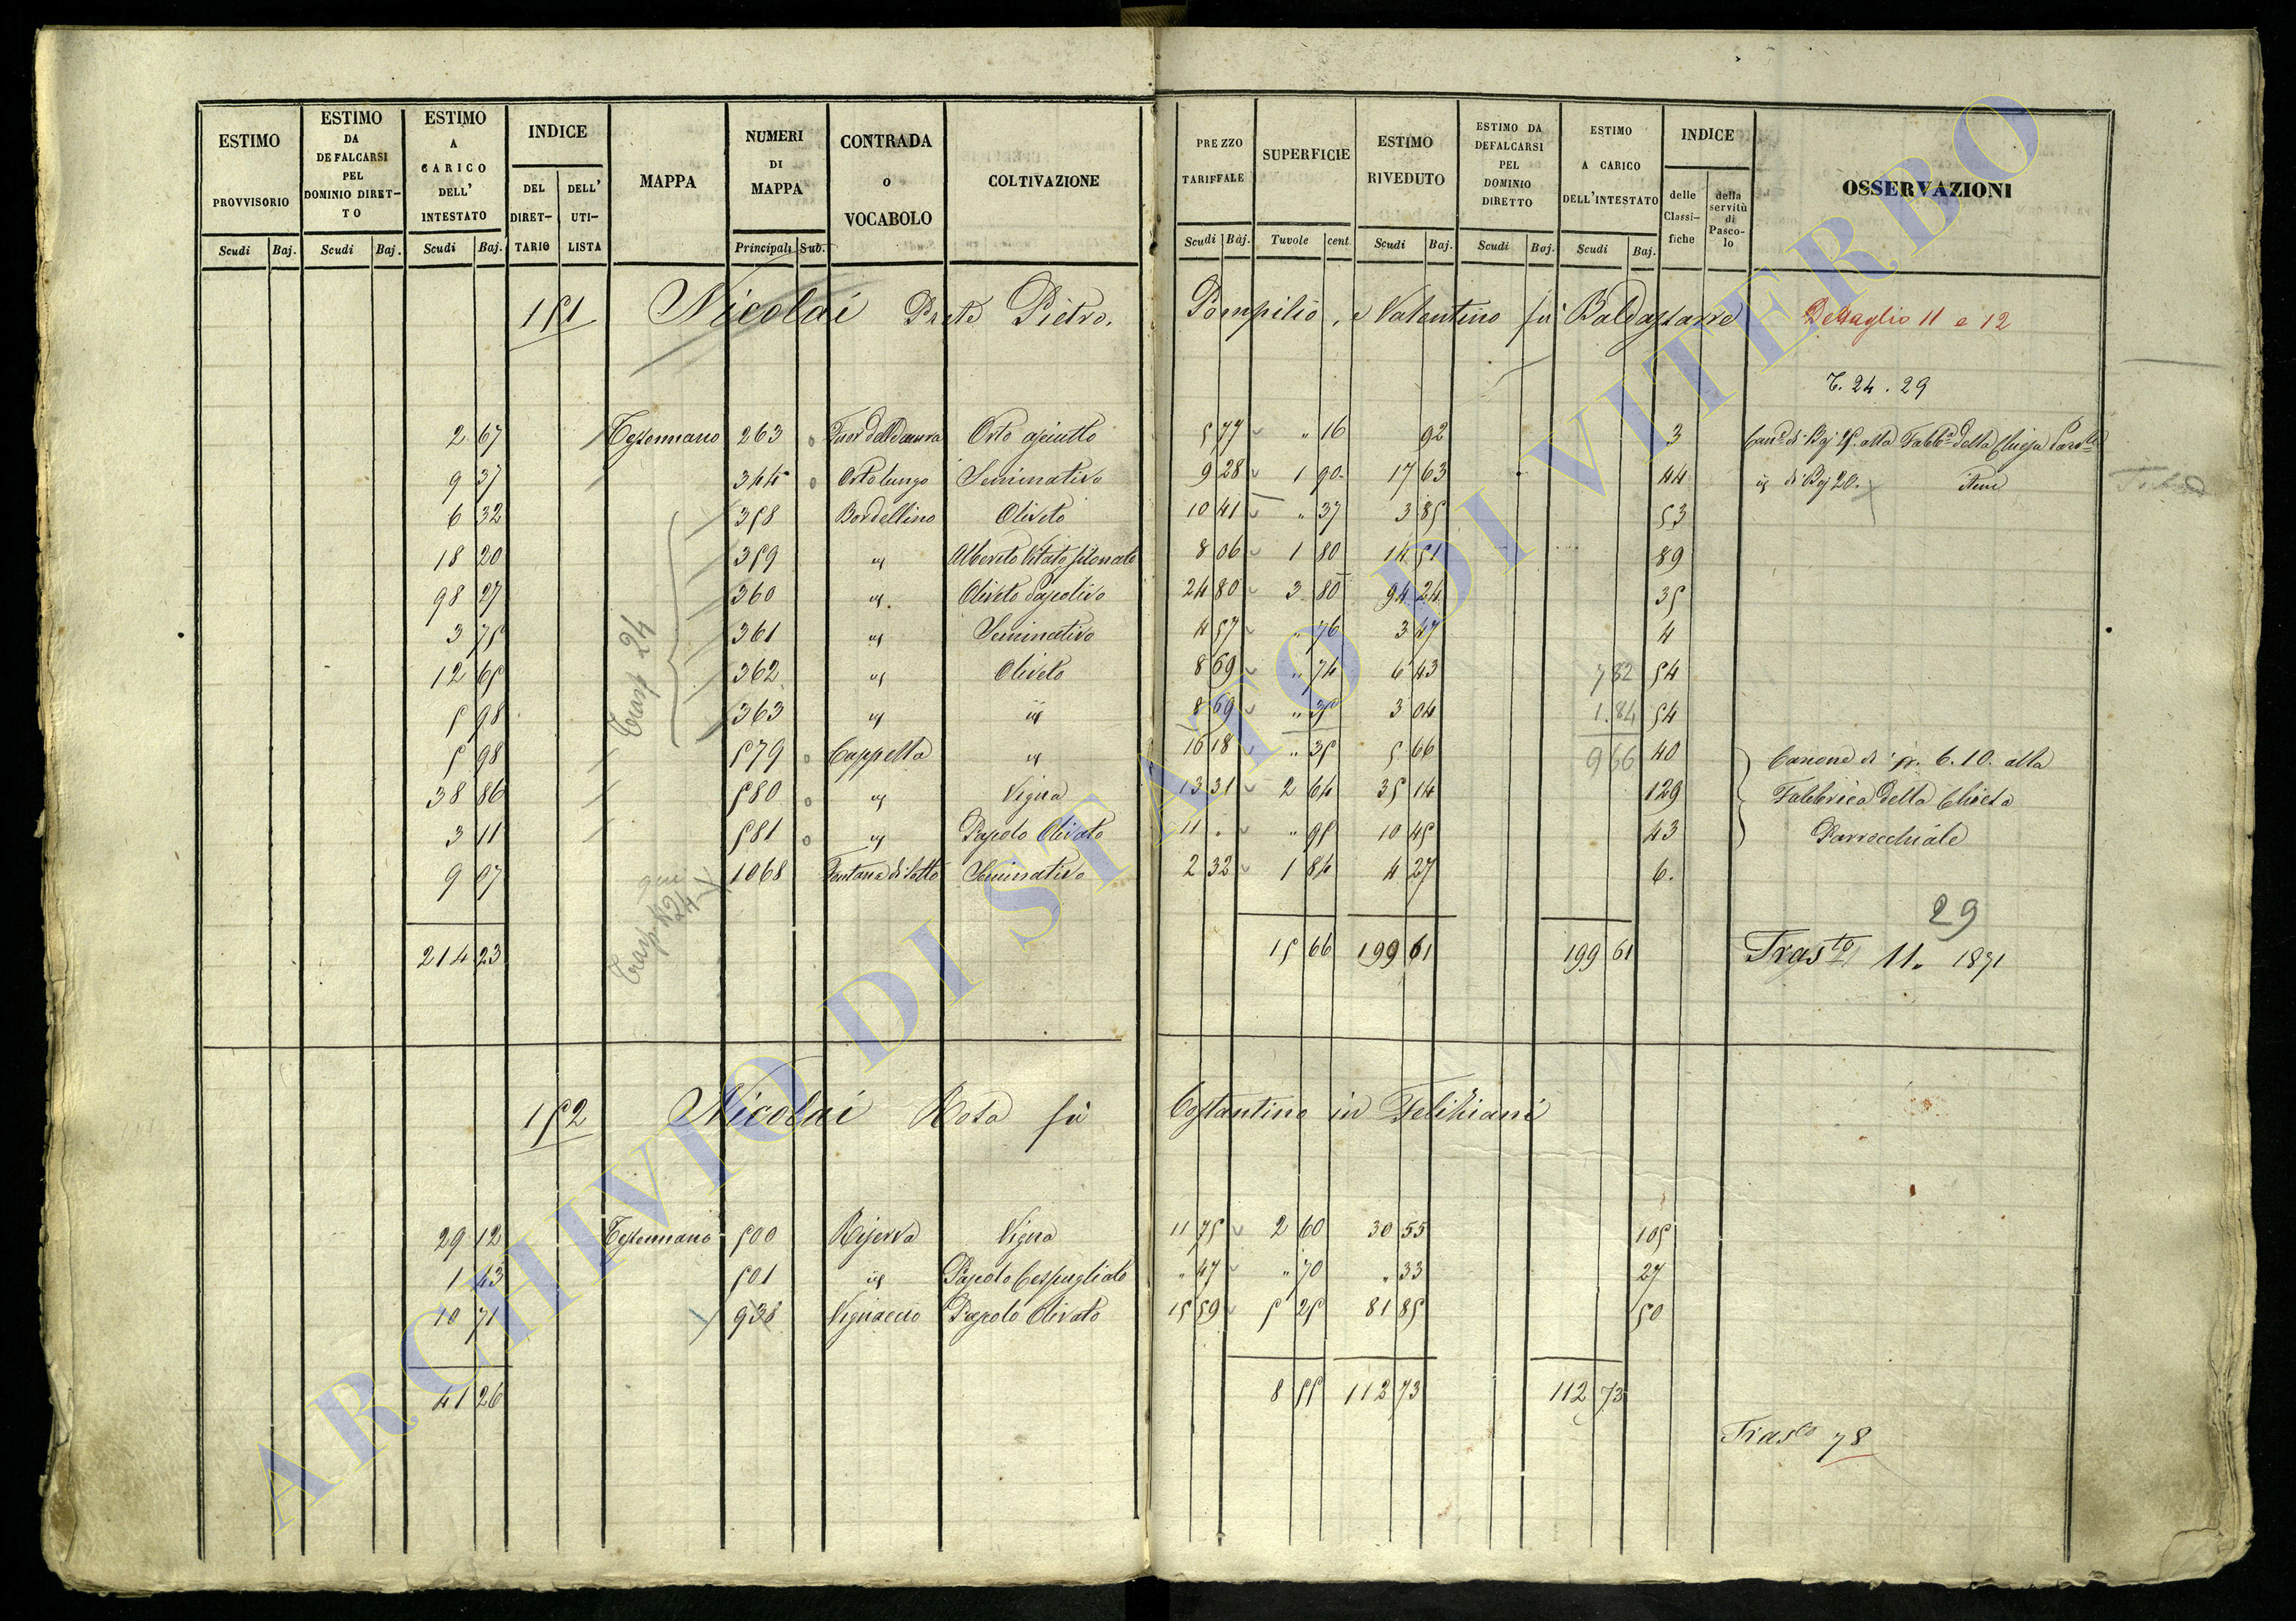 ESTIMO PROVVISORIO | ESTIMO DA DEFALCARSI PEL DOMINIO DIRET-TO | ESTIMO A CARICO DELL' INTESTATO | INDICE | MAPPA | NUMERI DI MAPPA | CONTRADA O VOCABOLO | COLTIVAZIONE | PREZZO TARIFFALE | SUPERFICIE | ESTIMO RIVEDUTO | ESTIMO DA DEFALCARSI PEL DOMINIO DIRETTO | ESTIMO A CARICO DELL'INTESTATO | INDICE | OSSERVAZIONI
DEL DIRET-TARIO | DELL' UTI-LISTA | delle Classi-fiche | della servitù di Pasco-lo
Scudi | Baj. | Scudi | Baj. | Scudi | Baj. | Principali | Sub. | Scudi | Baj. | Tavole | cent. | Scudi | Baj. | Scudi | Baj. | Scudi | Baj.
151 Nicolai Prete Pietro, Pompilio, e Valentino fù Baldassarre Dettaglio 11 e 12
T. 24. 29
2 67 Tessennano 263 Orto asciutto 5 77 " 16 92 3
9 37 344 Ortolungo Seminativo 9 28 1 90 17 63 44 id di Baj 20. Idem
6 32 358 Bordellino Oliveto 10 41 " 37 3 85 53
18 20 359 id Alberato Vitato 8 06 1 80 14 51 89
98 27 360 id. Oliveto Pascolivo 24 80 3 80 94 24 35
3 75 361 id Seminativo 4 57 " 76 3 47 4
12 65 362 id Oliveto 8 69 " 74 6 43 7 82 54
5 98 363 id id 8 69 " 35 3 04 1.84 54
Trasp 24
5 98 579 Cappella id 16 18 " 35 5 66 9 66 40 Canone di 6.10. alla
38 86 580 id Vigna 13 31 2 64 35 14 129 Fabbrica della Chiesa
3 11 581 id Pascolo Olivato 11 " " 95 10 45 43 Parrocchiale
9 07 1068 Fontana di Sotto Seminativo 2 32 1 84 4 27 6.
29
214 23 15 66 199 61 199 61 Trasto 11. 1871
152 Nicolai Rosa fù Costantino in Feliziani
29 12 Tessennano 500 Riserva Vigna 11 75 2 60 30 55 105
1 43 501 id Pascolo Cespugliato " 47 " 70 " 33 27
10 71 938 Vignaccio Pascolo Olivato 15 59 5 25 81 85 50
41 26 8 55 112 73 112 73
Trasto 78
ARCHIVIO DI STATO DI VITERBO